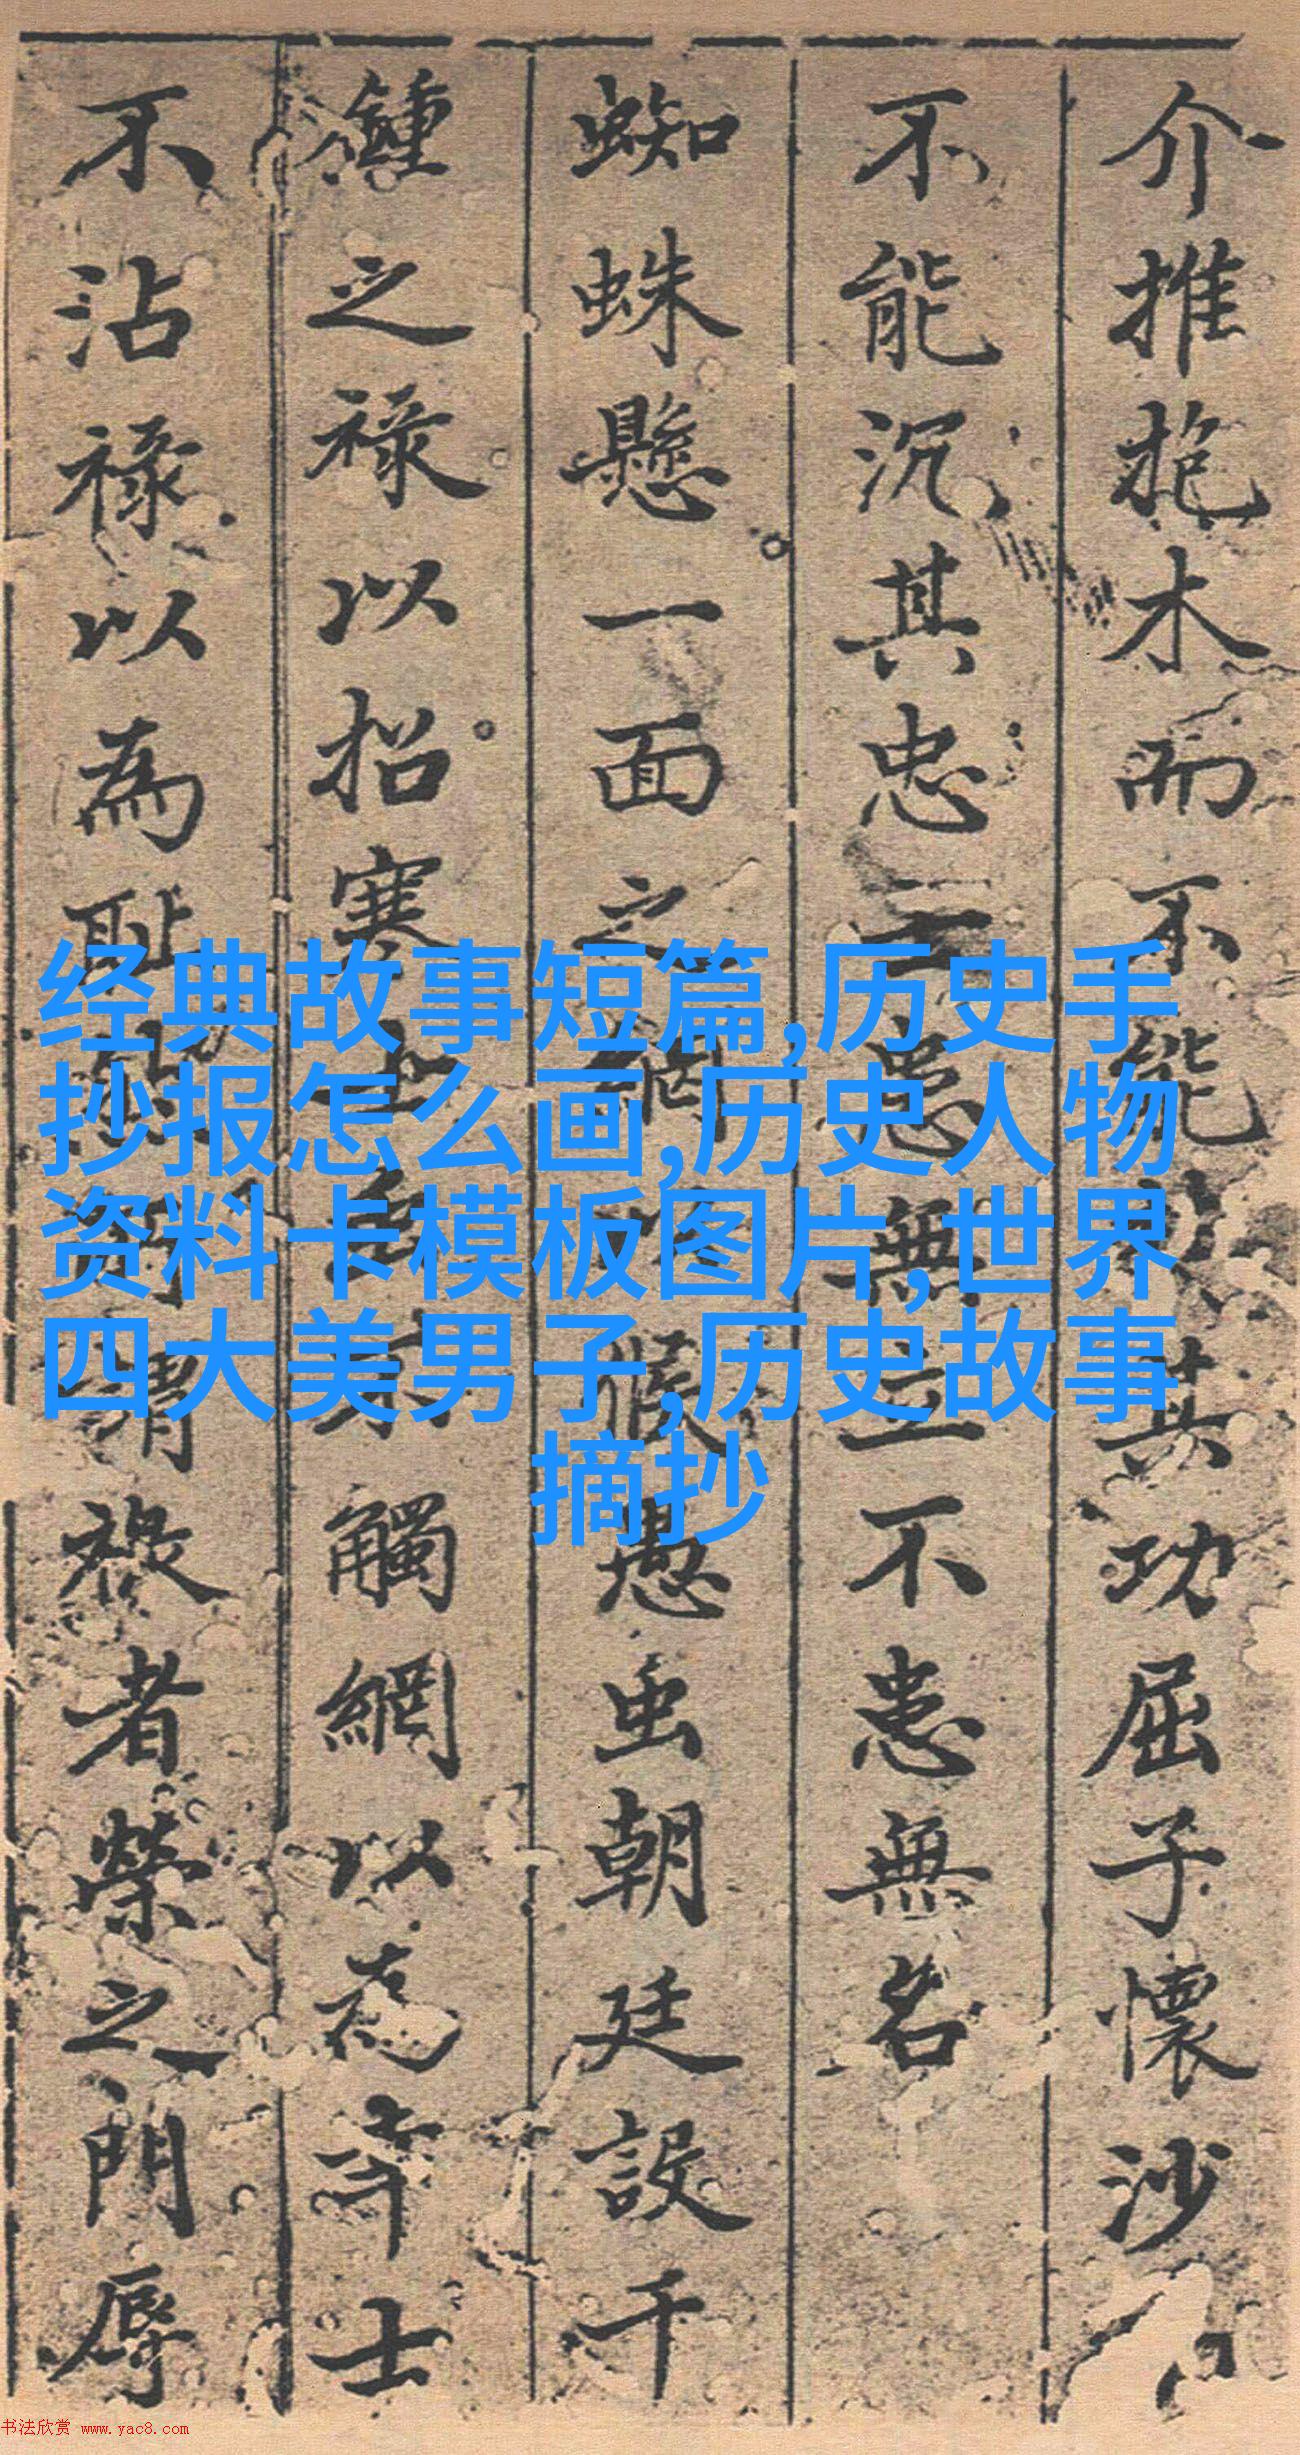 介推抱木而不能其功屈子懷沙
不能沉其忠患無立不患無名
蜘蛛懸一面之網愚虫朝廷設千
鍾之祿以招寒士觸網以為士
不沾祿以為恥謂祿者榮之門辱
经典故事短篇,历史手
抄报怎么画,历史人物
资料卡模板图片,世界
四大美男子,历史故事
摘抄
书法欣赏 www.yac8.com